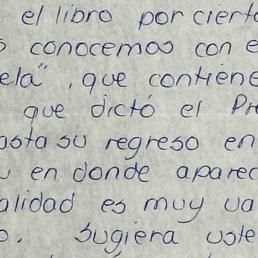 el libro por cierto
conocemos con e
ela", que contiene
que dictó el Pre
asta su regreso en
en donde aparec
alidad es muy va
o. Sugiera uste